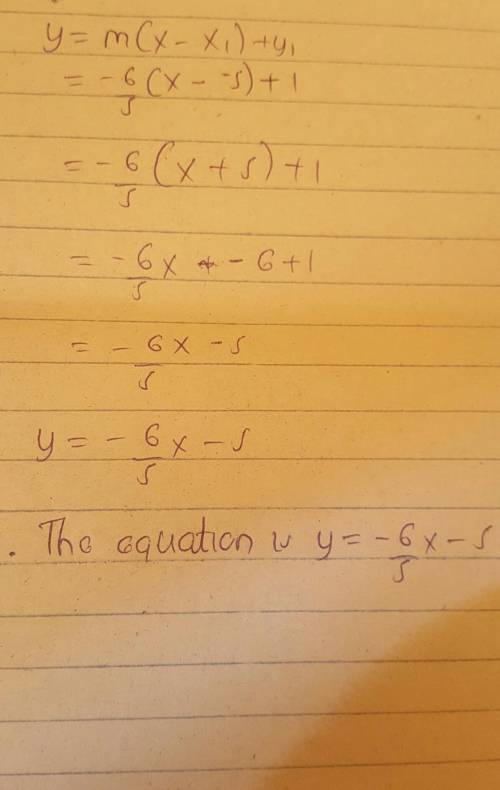 y = m(x - x₁) + y₁
= -6/5 (x - -5) + 1
= -6/5 (x + 5) + 1
= -6/5 x - 6 + 1
= -6/5 x - 5
y = -6/5 x - 5
. The equation is y = -6/5 x - 5